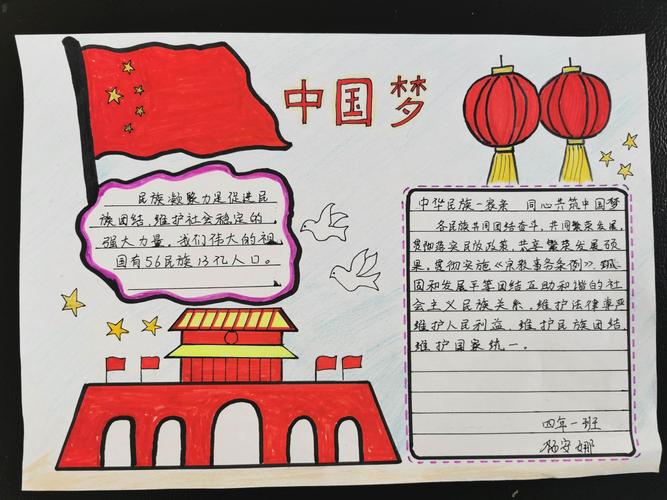 中国梦
民族凝聚力是促进民
族团结,维护社会稳定的
强大力量,我们伟大的祖
国有56民族13亿人口。
中华民族一家亲 同心共筑中国梦
各民族共同团结奋斗,共同繁荣发展,
贯彻落实民族政策,共享繁荣发展硕
果。贯彻实施《宗教事务条例》巩
固和发展平等团结互助和谐的社
会主义民族关系,维护法律尊严
维护人民利益,维护民族团结,
维护国家统一。
四年一班
杨安娜